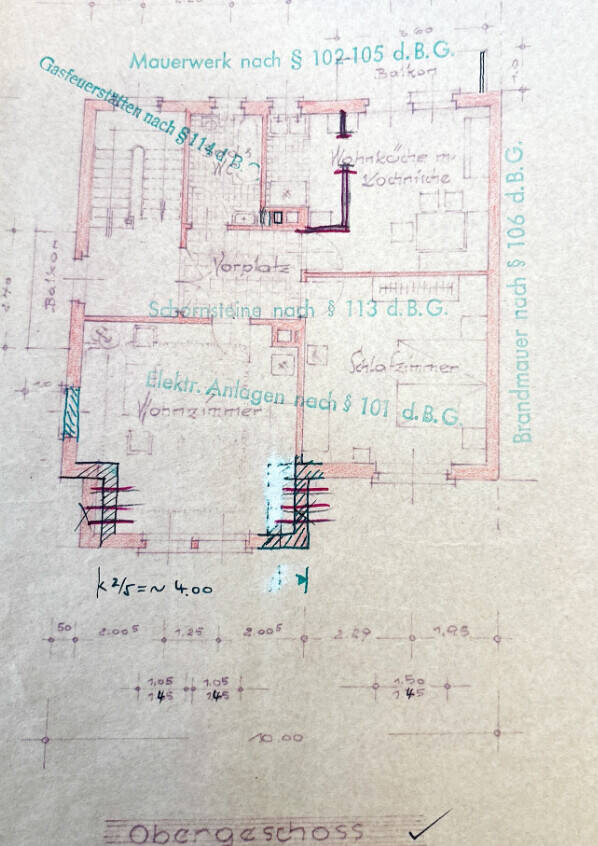 2.60
Mauerwerk nach § 102-105 d. B. G.
Balkon
Gasfeuerstätten nach § 114 d. B.
Wohnküche m.
Kochnische
WC
Brandmauer nach § 106 d. B. G.
Balkon
Vorplatz
Schornsteine nach § 113 d. B. G.
Schlafzimmer
Elektr. Anlagen nach § 101 d. B. G.
Wohnzimmer
k 2/5 = ~ 4.00
50 2.00⁵ 1.25 2.00⁵ 2.29 1.95
1.05 1.05 1.50
1.45 1.45 1.45
10.00
Obergeschoss